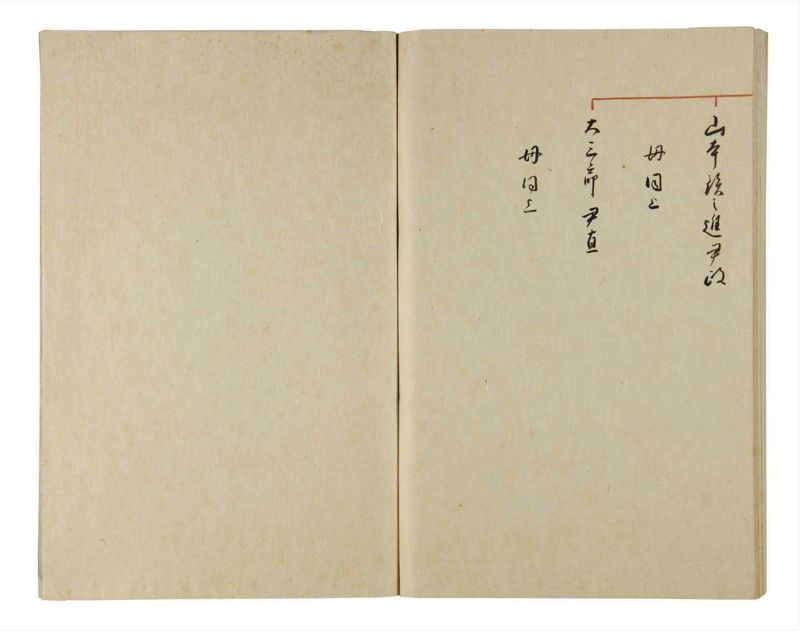 山本
之進尹政
母同上
大三郎 尹直
母同上